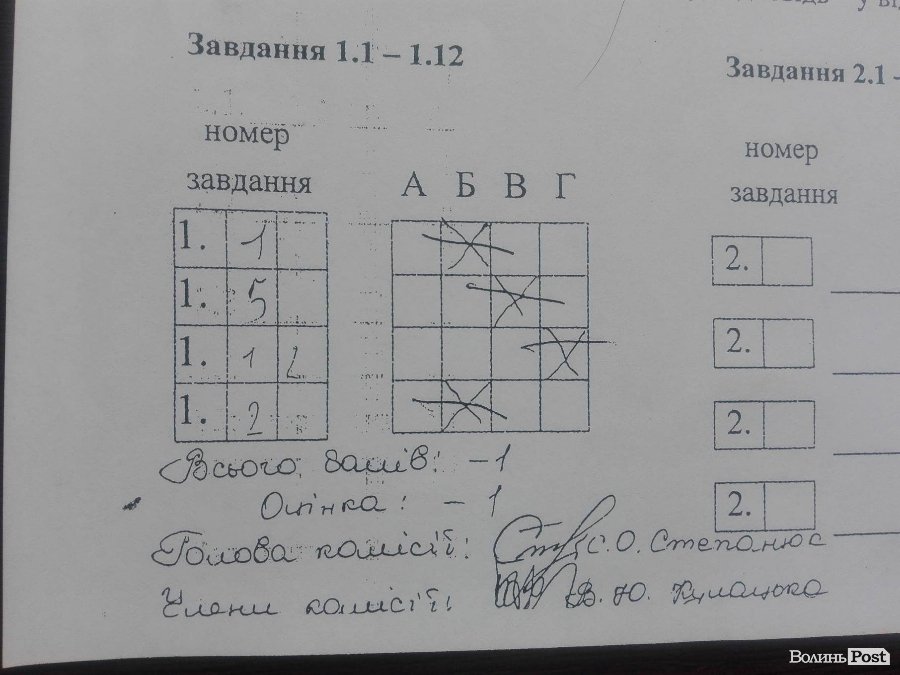 у ві
Завдання 1.1 – 1.12
Завдання 2.1 -
номер
завдання
А Б В Г
номер
завдання
1. 1
1. 5
1. 1 2
1. 2
2.
2.
2.
2.
Всього балів: – 1
Оцінка: – 1
Голова комісії: С.О. Степанюк
Члени комісії: В. Ю. Кулацька
ВолиньPost